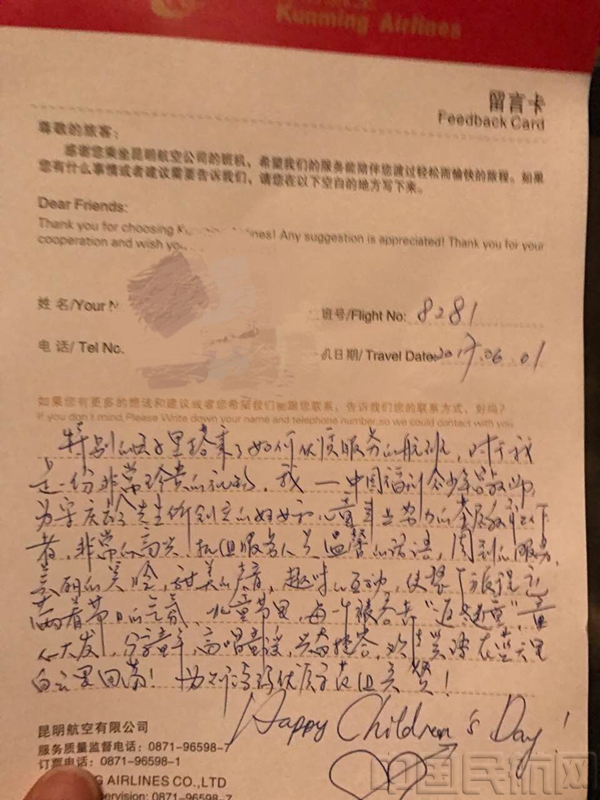 Kunming Airlines
留言卡
Feedback Card
尊敬的旅客：
感谢您乘坐昆明航空公司的班机，希望我们的服务能陪伴您渡过轻松而愉快的旅程。如果
您有什么事情或者建议需要告诉我们，请您在以下空白的地方写下来。
Dear Friends:
Thank you for choosing K nes! Any suggestion is appreciated! Thank you for your
cooperation and wish you
姓 名/Your N 班号/Flight No: 8281
电 话/ Tel No. 日期/ Travel Date: 2017.06.01
如果您有更多的想法和建议或者您希望我们能跟您联系，告诉我们您的联系方式，好吗？
If you don't mind, Please Write down your name and telephone number, so we could contact with you
特别的日子里搭乘了如何优质服务的航班，对于我
是一份非常珍贵的礼物，我一中国福利会少年宫教师，
为宋庆龄先生所创立的妇女和儿童事业努力的
者，非常的高兴，机组服务人员温馨的话语，周到的服务，
美丽的笑脸，甜美的声音，趣味的互动，使整个旅程充
满着节日的气氛，儿童节里，每个乘客 “返老还童”，童
心大发，分享童年，高唱童谣，欢声笑语在蓝天里
白云里回荡！为 优质 机组点赞！
Happy Children's Day!
昆明航空有限公司
服务质量监督电话：0871-96598-7
订票电话：0871-96598-1
G AIRLINES CO.,LTD
pervision: 0871-96598-7
中国民航网